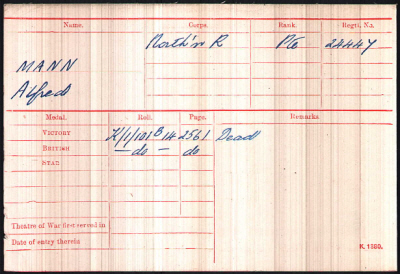 Name. Corps. Rank. Regtl. No.
North'n R Pte 24447
MANN
Alfred
Medal. Roll. Page. Remarks.
VICTORY K/1/101B14 2561 Dead
BRITISH — do — do
STAR
Theatre of War first served in
Date of entry therein
K. 1380.